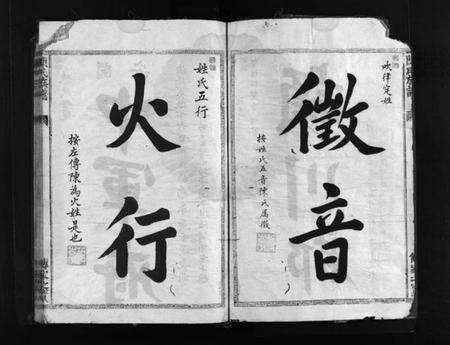 吹律定姓
徵音
按姓氏五音陳氏属徵
姓氏五行
火行
按左傳陳為火姓是也